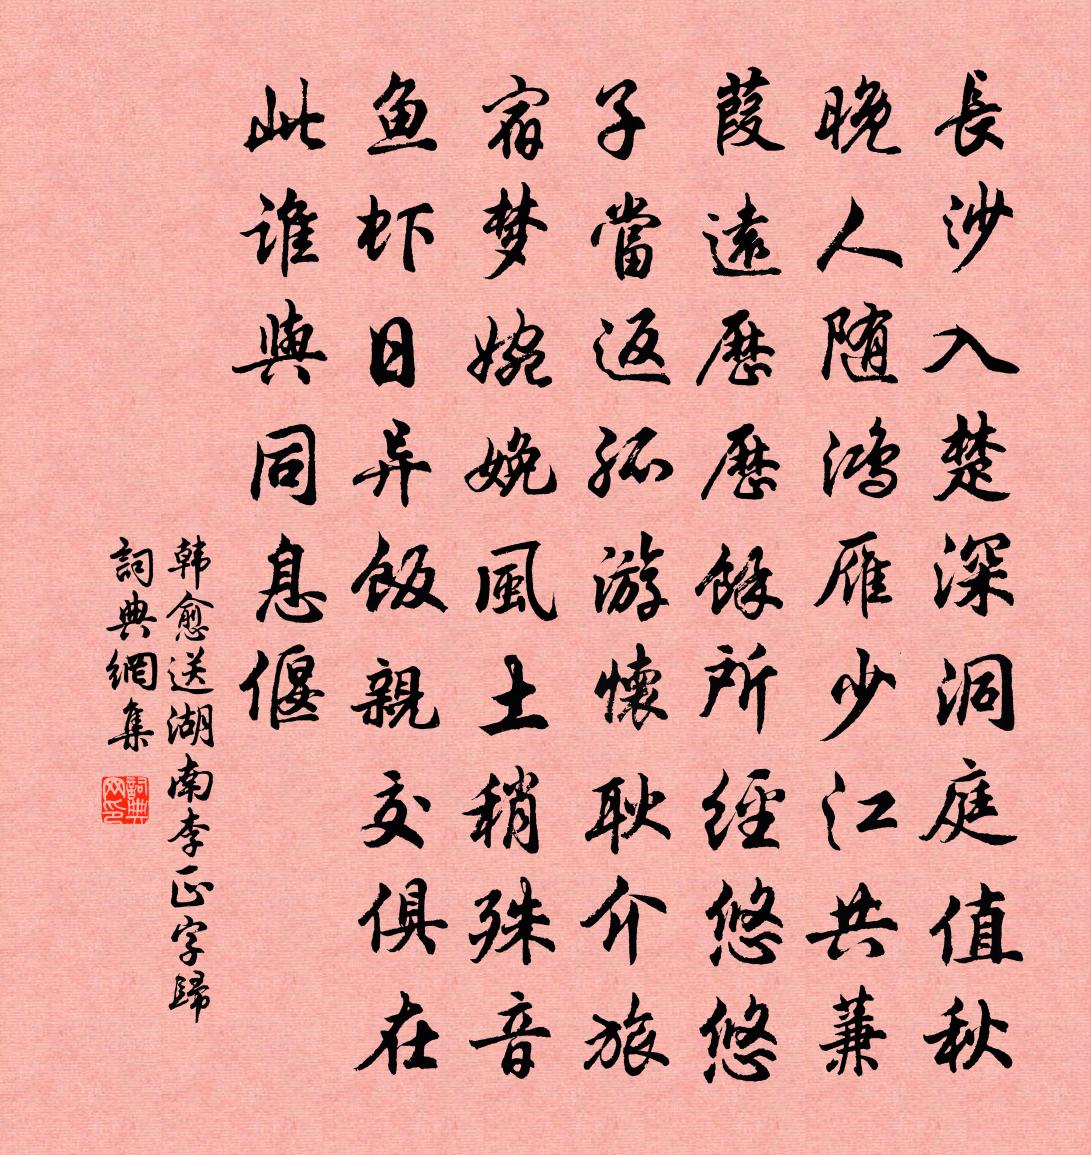 長沙入楚深洞庭值秋
晚人随鴻雁少江共蒹
葭遠歷歷餘所經悠悠
子當返孤游懷耿介旅
宿梦婉娩風土稍殊音
鱼虾日异飯親交俱在
此谁與同息偃
韩愈送湖南李正字歸
詞典網集
詞典网印